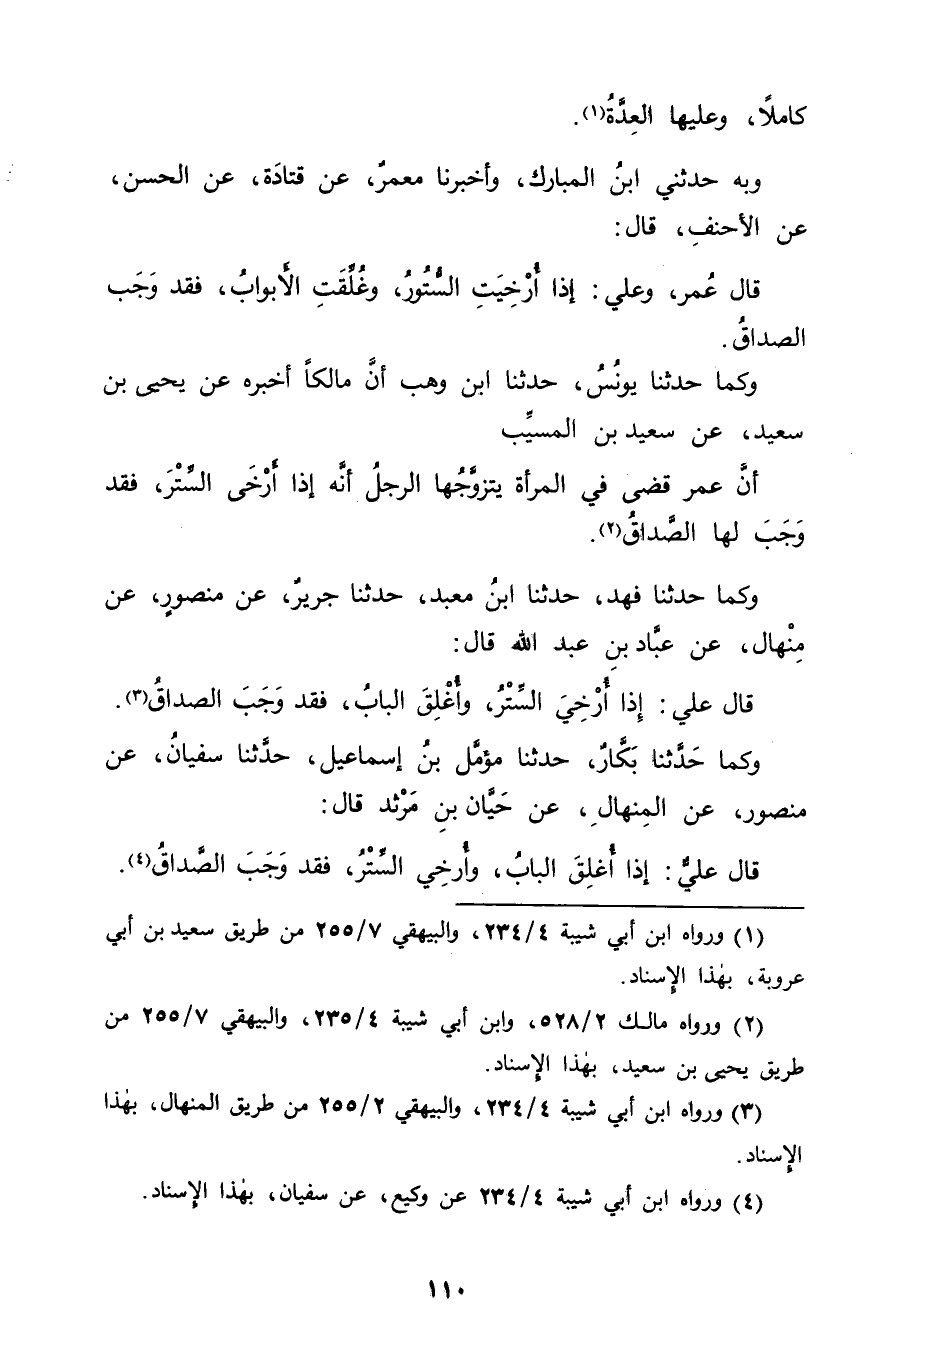 كاملًا، وعليها العِدَّةُ(١).
وبه حدثني ابنُ المبارك، وأخبرنا معمرٌ، عن قتادَة، عن الحسن،
عن الأحنفِ، قال:
قال عُمر، وعلي: إذا أُرْخِيَتِ السُّتُورُ، وغُلِّقَتِ الأَبوابُ، فقد وَجَب
الصداقُ.
وكما حدثنا يونُسُ، حدثنا ابن وهب أنَّ مالكاً أخبره عن يحيى بن
سعيد، عن سعيد بن المسيِّب
أنَّ عمر قضى في المرأة يتزوَّجُها الرجلُ أنَّه إذا أَرْخَى السِّتْرَ، فقد
وَجَبَ لها الصَّداقُ(٢).
وكما حدثنا فهد، حدثنا ابنُ معبد، حدثنا جريرٌ، عن منصورٍ، عن
مِنْهال، عن عبَّاد بنِ عبد الله قال:
قال علي: إِذا أُرْخِيَ السِّتْرُ، وأُغْلِقَ البابُ، فقد وَجَبَ الصداقُ(٣).
وكما حَدَّثنا بَكَّارٌ، حدثنا مؤمَّل بنُ إسماعيل، حدَّثنا سفيانُ، عن
منصور، عن المِنهالِ، عن حَيَّان بنِ مَرْثد قال:
قال عليٌّ: إذا أُغلِقَ البابُ، وأُرخِي السِّتْرُ، فقد وَجَبَ الصَّداقُ(٤).
(١) ورواه ابن أبي شيبة ٢٣٤/٤، والبيهقي ٢٥٥/٧ من طريق سعيد بن أبي
عروبة، بهٰذا الإِسناد.
(٢) ورواه مالك ٥٢٨/٢، وابن أبي شيبة ٢٣٥/٤، والبيهقي ٢٥٥/٧ من
طريق يحيى بن سعيد، بهٰذا الإِسناد.
(٣) ورواه ابن أبي شيبة ٢٣٤/٤، والبيهقي ٢٥٥/٢ من طريق المنهال، بهٰذا
الإِسناد.
(٤) ورواه ابن أبي شيبة ٢٣٤/٤ عن وكيع، عن سفيان، بهٰذا الإِسناد.
١١٠